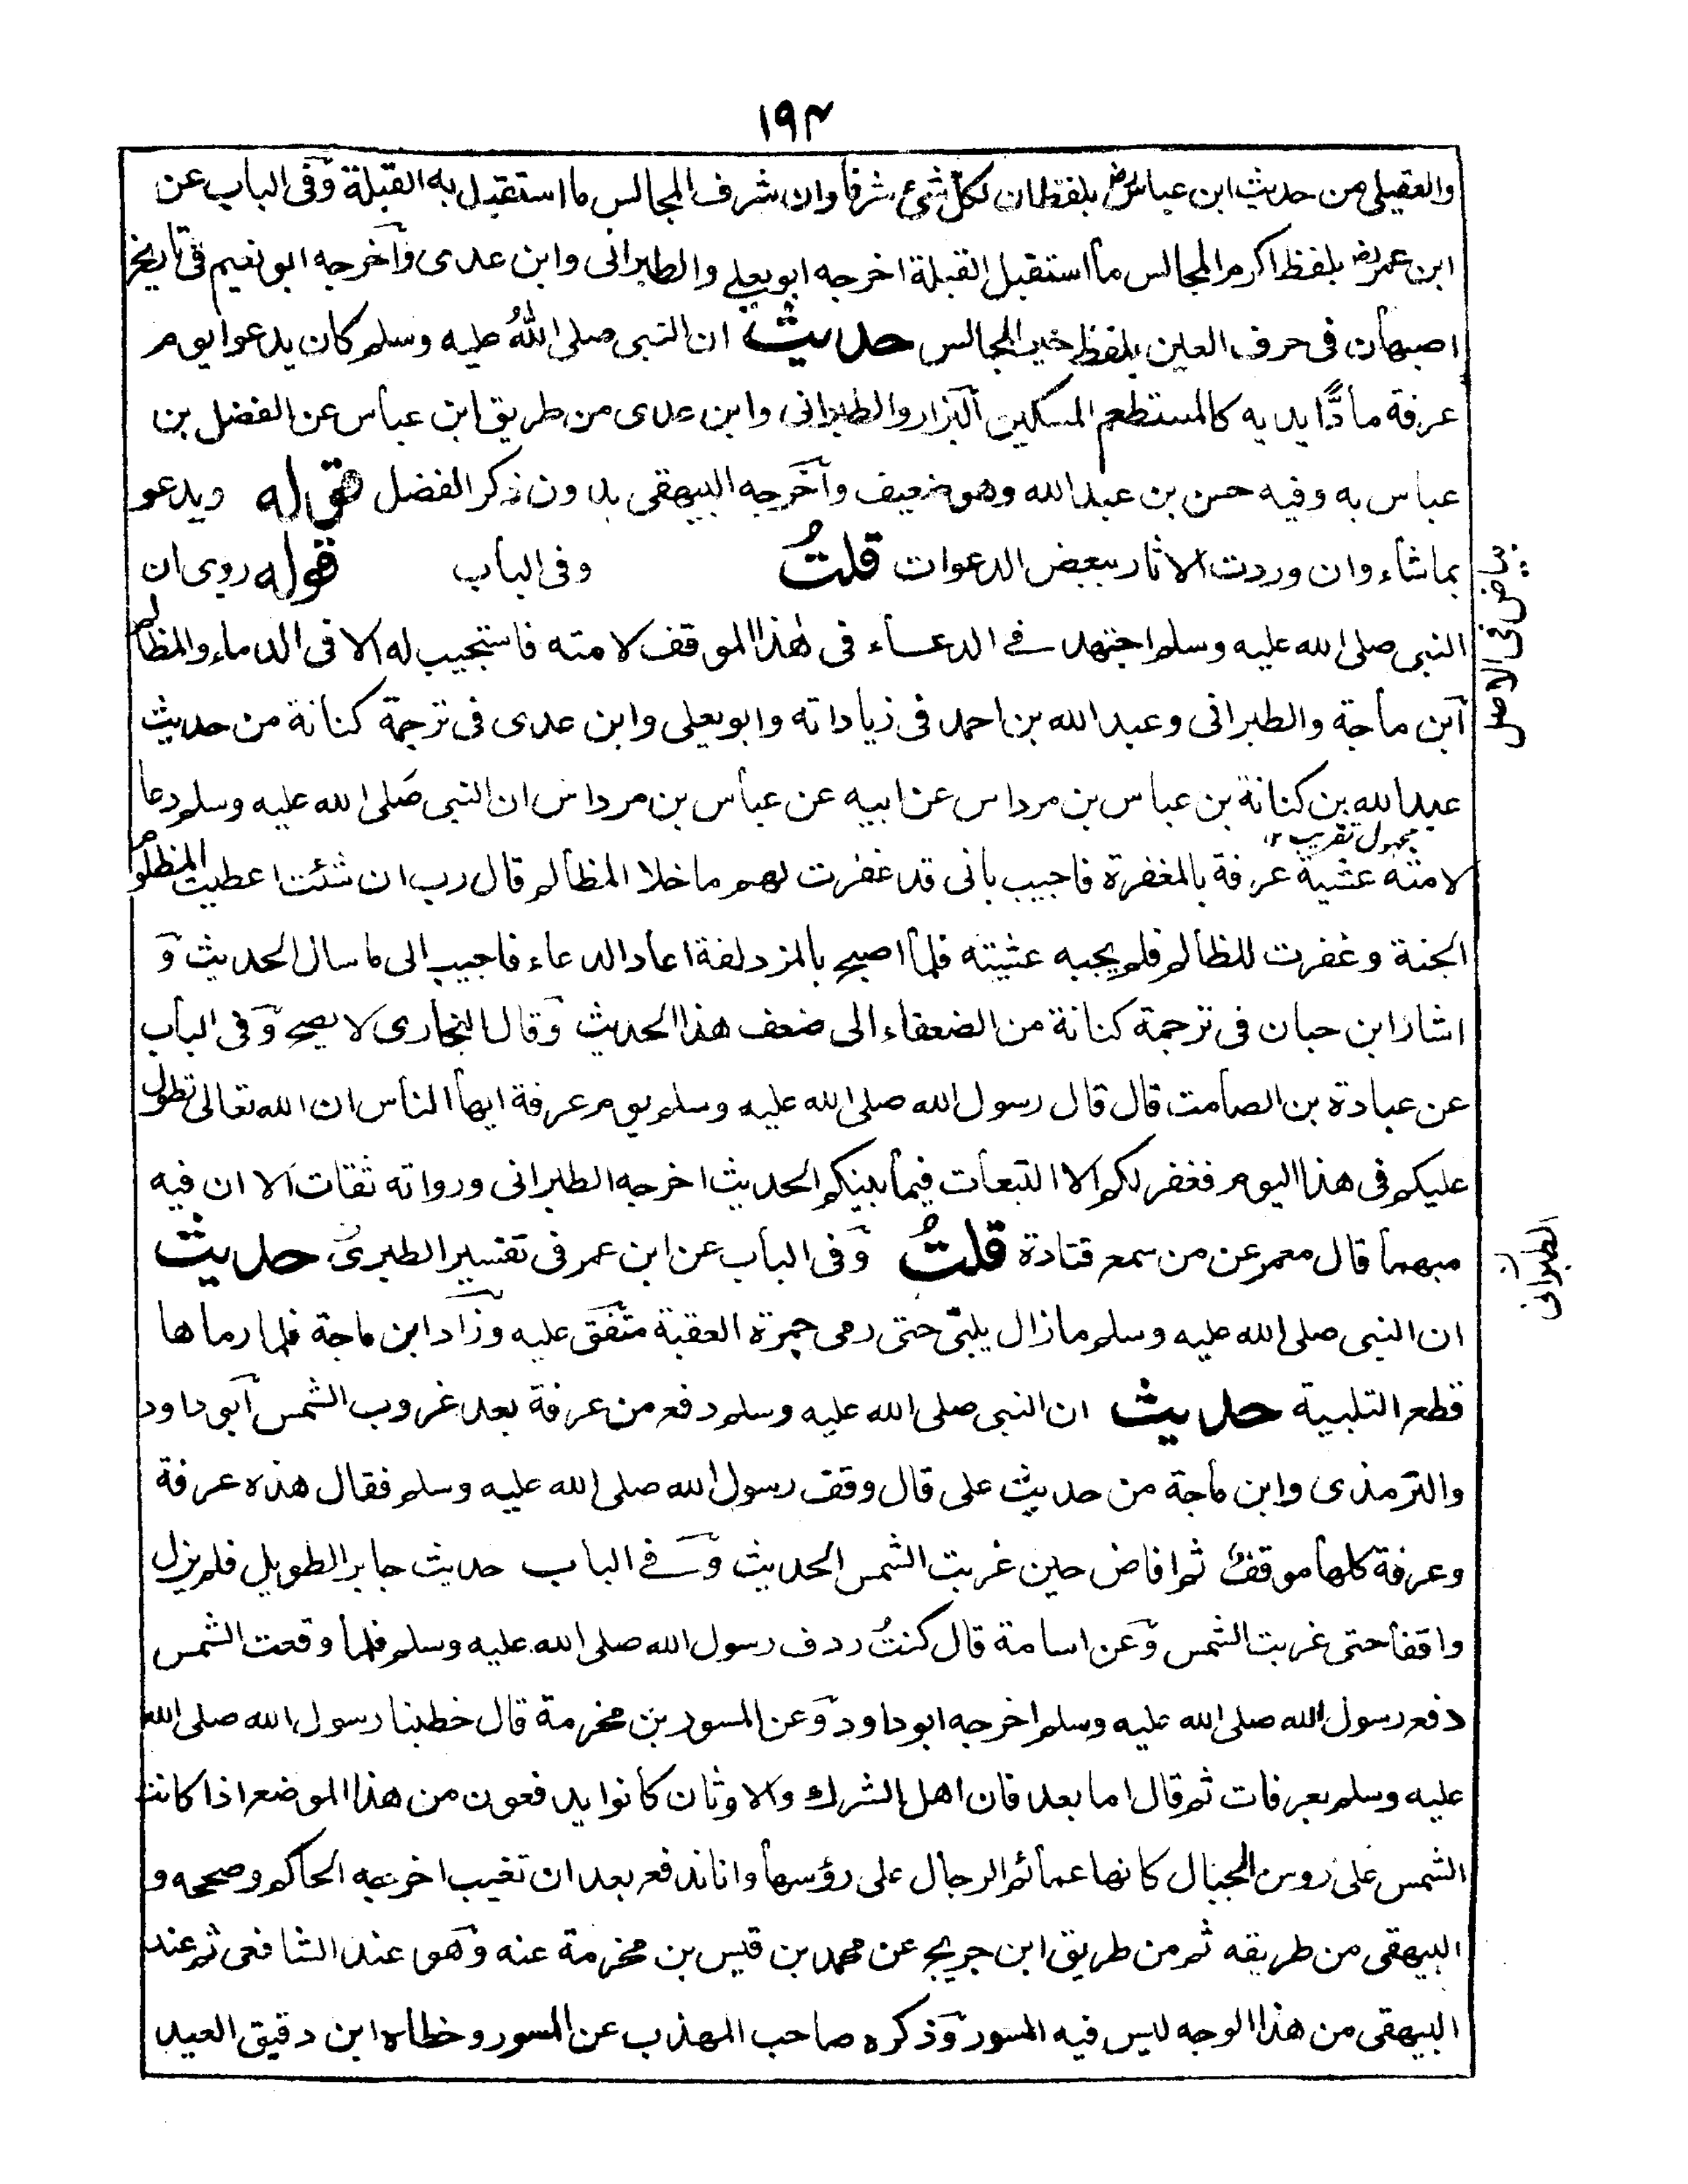 ١٩٤
والعقيلي من حديث ابن عباس رض بلفظ ان لكل شئ شرفا وان شرف المجالس ما استقبل به القبلة وفى الباب عن
ابن عمر رض بلفظ اكرم المجالس ما استقبل القبلة اخرجه ابو يعلى والطبرانى وابن عدى وآخرجه ابو نعيم فى تاريخ
اصبهان فى حرف العين بلفظ خير المجالس حديث ان النبى صلى اللهُ عليه وسلم كان يدعو ايوم
عرفة مادًّا يديه كالمستطعم المسكين آلبزار والطبرانى وابن عدى من طريق ابن عباس عن الفضل بن
عباس به وفيه حسن بن عبد الله وهو ضعيف وآخرجه البيهقى بدون ذكر الفضل قوله ويدعو
بما شاء وان وردت الاثار ببعض الدعوات قلتُ وفى الباب قوله روى ان
النبى صلى الله عليه وسلم اجتهد فے الدعاء فى هٰذا الموقف لامته فاستجيب له الا فى الدماء والمظالم
آبن ماجة والطبرانى وعبد الله بن احمد فى زياداته وابو يعلى وابن عدى فى ترجمة كنانة من حديث
عبد الله بن كنانة بن عباس بن مرداس عن ابيه عن عباس بن مرداس ان النبى صلى الله عليه وسلم دعا
مجهول تقريب ١٢
لامته عشية عرفة بالمغفرة فاجيب بانى قد غفرت لهم ما خلا المظالم قال رب ان شئت اعطيت المظلوم
الجنة وغفرت للظالم فلم يجبه عشيته فلما اصبح بالمزدلفة اعاد الدعاء فاجيب الى ما سال الحديث وَ
اشار ابن حبان فى ترجمة كنانة من الضعفاء الى ضعف هذا الحديث وَقال البخارى لا يصح وَفى الباب
عن عبادة بن الصامت قال قال رسول الله صلى الله عليه وسلم يوم عرفة ايها الناس ان الله تعالى تطول
عليكم فى هذا اليوم فغفر لكم الا التبعات فيما بينكم الحديث اخرجه الطبرانى ورواته ثقات الا ان فيه
مبهما قال معمر عن من سمع قتادة قلتُ وَفى الباب عن ابن عمر فى تفسير الطبرى حديث
ان النبى صلى الله عليه وسلم ما زال يلبّى حتى رمى جمرة العقبة متفق عليه وزاد ابن ماجة فلما رماها
قطع التلبية حديث ان النبى صلى الله عليه وسلم دفع من عرفة بعد غروب الشمس آبو داود
والترمذى وابن ماجة من حديث على قال وقف رسول الله صلى الله عليه وسلم فقال هذه عرفة
وعرفة كلها موقفٌ ثم افاض حين غربت الشمس الحديث وَفے الباب حديث جابر الطويل فلم يزل
واقفا حتى غربت الشمس وَعن اسامة قال كنتُ ردف رسول الله صلى الله عليه وسلم فلما وقعت الشمس
دفع رسول الله صلى الله عليه وسلم اخرجه ابو داود وَعن المسور بن مخرمة قال خطبنا رسول الله صلى الله
عليه وسلم بعرفات ثم قال اما بعد فان اهل الشرك والاوثان كانوا يدفعون من هذا الموضع اذا كانت
الشمس على روس الجبال كانها عمائم الرجال على رؤسها وانا ندفع بعد ان تغيب اخرجه الحاكم وصححه و
البيهقى من طريقه ثم من طريق ابن جريج عن محمد بن قيس بن مخرمة عنه وَهو عند الشافعى ثم عند
البيهقى من هذا الوجه ليس فيه المسور وَذكره صاحب المهذب عن المسور وخطاه ابن دقيق العيد
بياض فى الاصل
الطبرانى